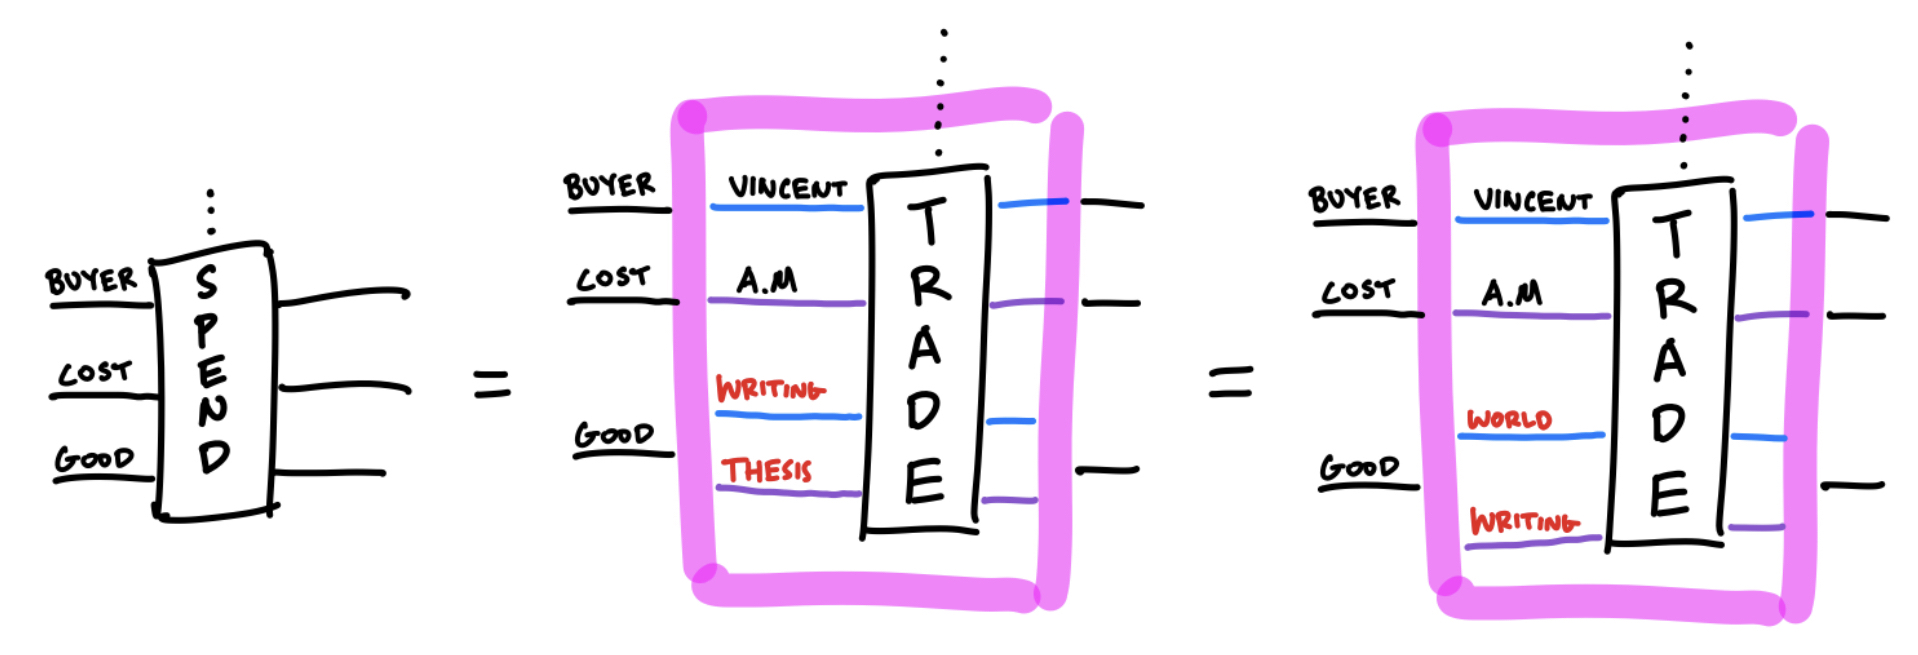 BUYER
COST
GOOD
SPEND
=
BUYER
COST
GOOD
VINCENT
A.M
WRITING
THESIS
TRADE
=
BUYER
COST
GOOD
VINCENT
A.M
WORLD
WRITING
TRADE